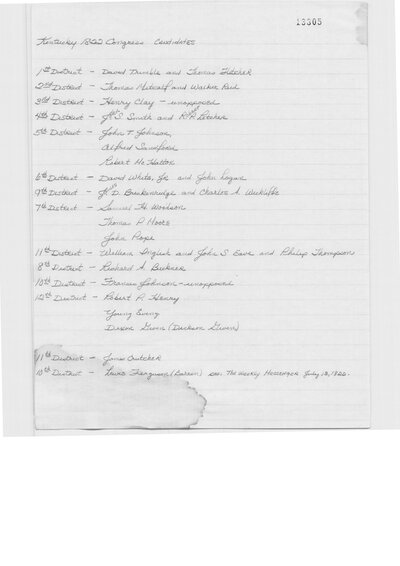 13305
Kentucky 1822 Congress Candidates
1st District - David Trumble and Thomas Fletcher
2nd District - Thomas Metcalf and Walker Reid
3rd District - Henry Clay - unopposed
4th District - S. Smith and R.P. Letcher
5th District - John T Johnson
Alfred Sandford
Robert McHatton
6th District - David White, Jr and John Logan
9th District - D. Breckenridge and Charles A. Wickliffe
7th District - Samuel H. Woodson
Thomas P. Moore
John Pope
11th District - William English and John S. Eave and Philip Thompson
8th District - Richard A. Buckner
10th District - Francis Johnson - unopposed
12th District - Robert P. Henry
Young Ewing
Dickson Given (Dickson Given)
11th District - James Crutcher
10th District - Lewis Ferguson (Barren) The Weekly Messenger July 13, 1822.